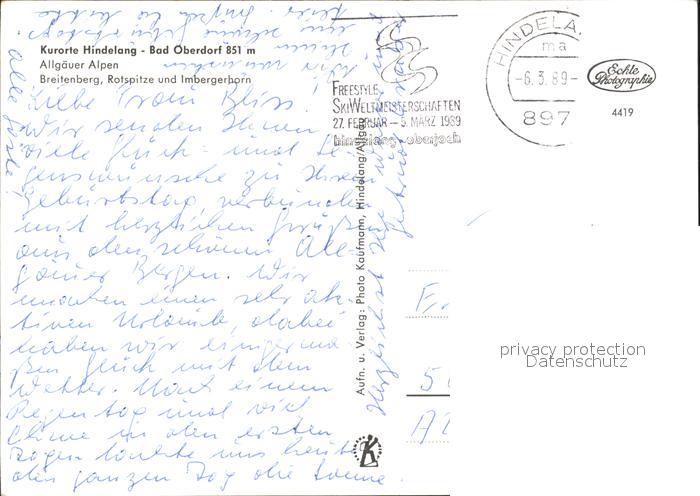 Kurorte Hindelang - Bad Oberdorf 851 m
Allgäuer Alpen
Breitenberg, Rotspitze und Imbergerhorn
Liebe Frau Bliss!
Wir senden Ihnen
viele Glück- und Se-
genswünsche zu Ihrem
Geburtstag verbunden
mit herzlichen Grüßen
aus den schönen All-
gäuer Bergen. Wir
machen einen sehr ak-
tiven Urlaub, dabei
haben wir einigerma-
ßen Glück mit dem
Wetter. Nach einem
Regentag und viel
in den ersten
Tagen lachte uns heute
den ganzen Tag die Sonne.
alles Gute!
Herzlichst
FREESTYLE
SKIWELTMEISTERSCHAFTEN
27. FEBRUAR - 5. MÄRZ 1989
hindelang-oberjoch
HINDELA
ma
-6.3.89-
897
Echte
Photographie
4419
Aufn. u. Verlag: Photo Kaufmann, Hindelang/Allgäu
K
privacy protection
Datenschutz